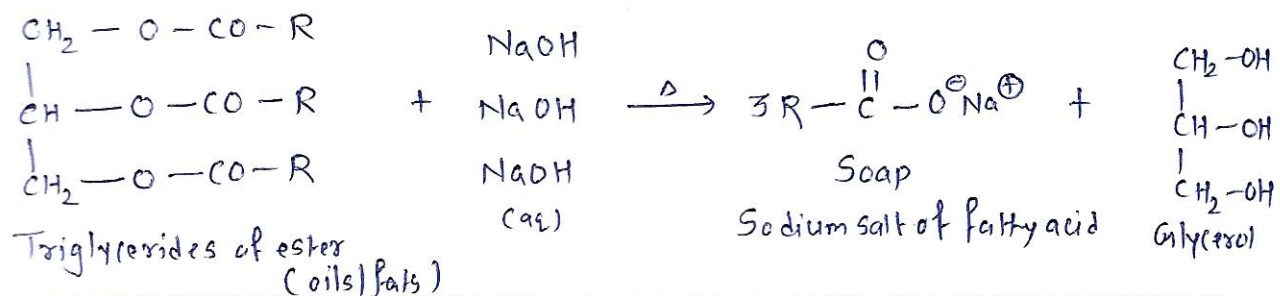 CH₂ — O — CO — R
CH — O — CO — R
CH₂ — O — CO — R
Triglycerides of ester
(oils) fats)
+
NaOH
NaOH
NaOH
(aq)
Δ
→
O
||
3R — C — O⊖Na⊕
Soap
Sodium salt of fatty acid
+
CH₂ -OH
CH - OH
CH₂ -OH
Glycerol